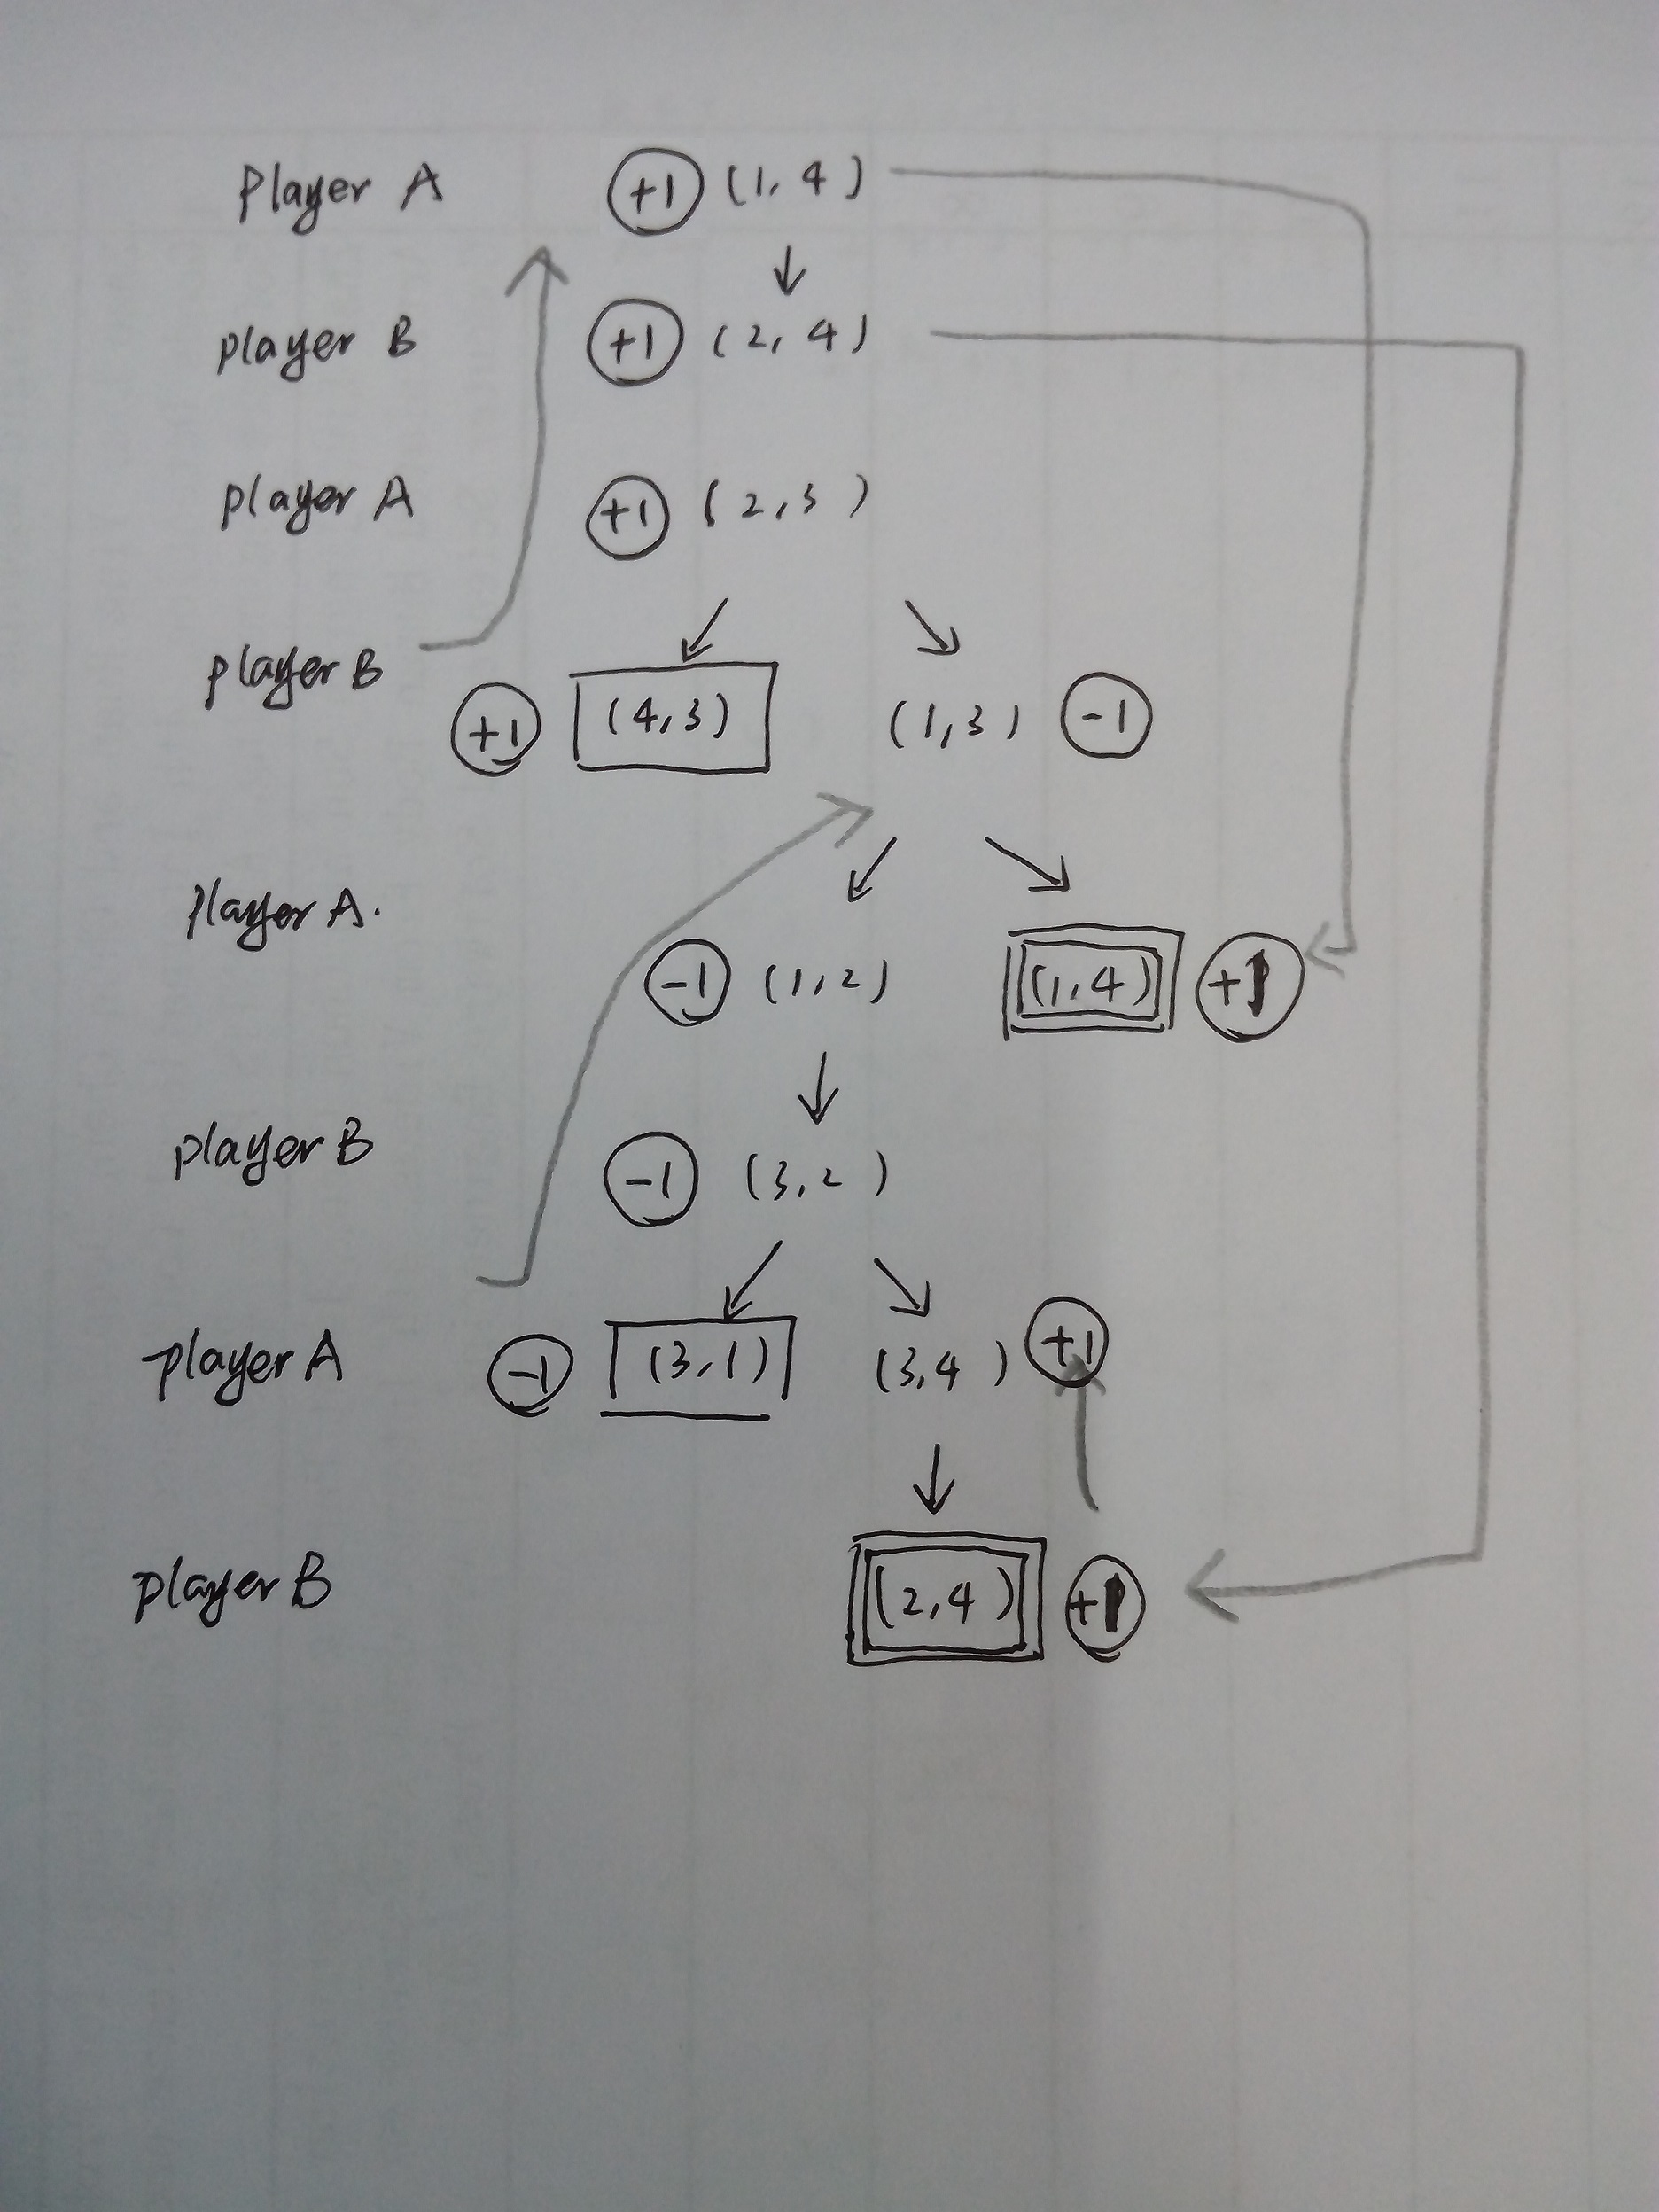 Player A +1 (1, 4)
player B +1 (2, 4)
player A +1 (2,3)
player B +1 (4,3) (1,3) -1
player A. -1 (1,2) (1,4) +1
player B -1 (3,2)
player A -1 (3,1) (3,4) +1
player B (2,4) +1